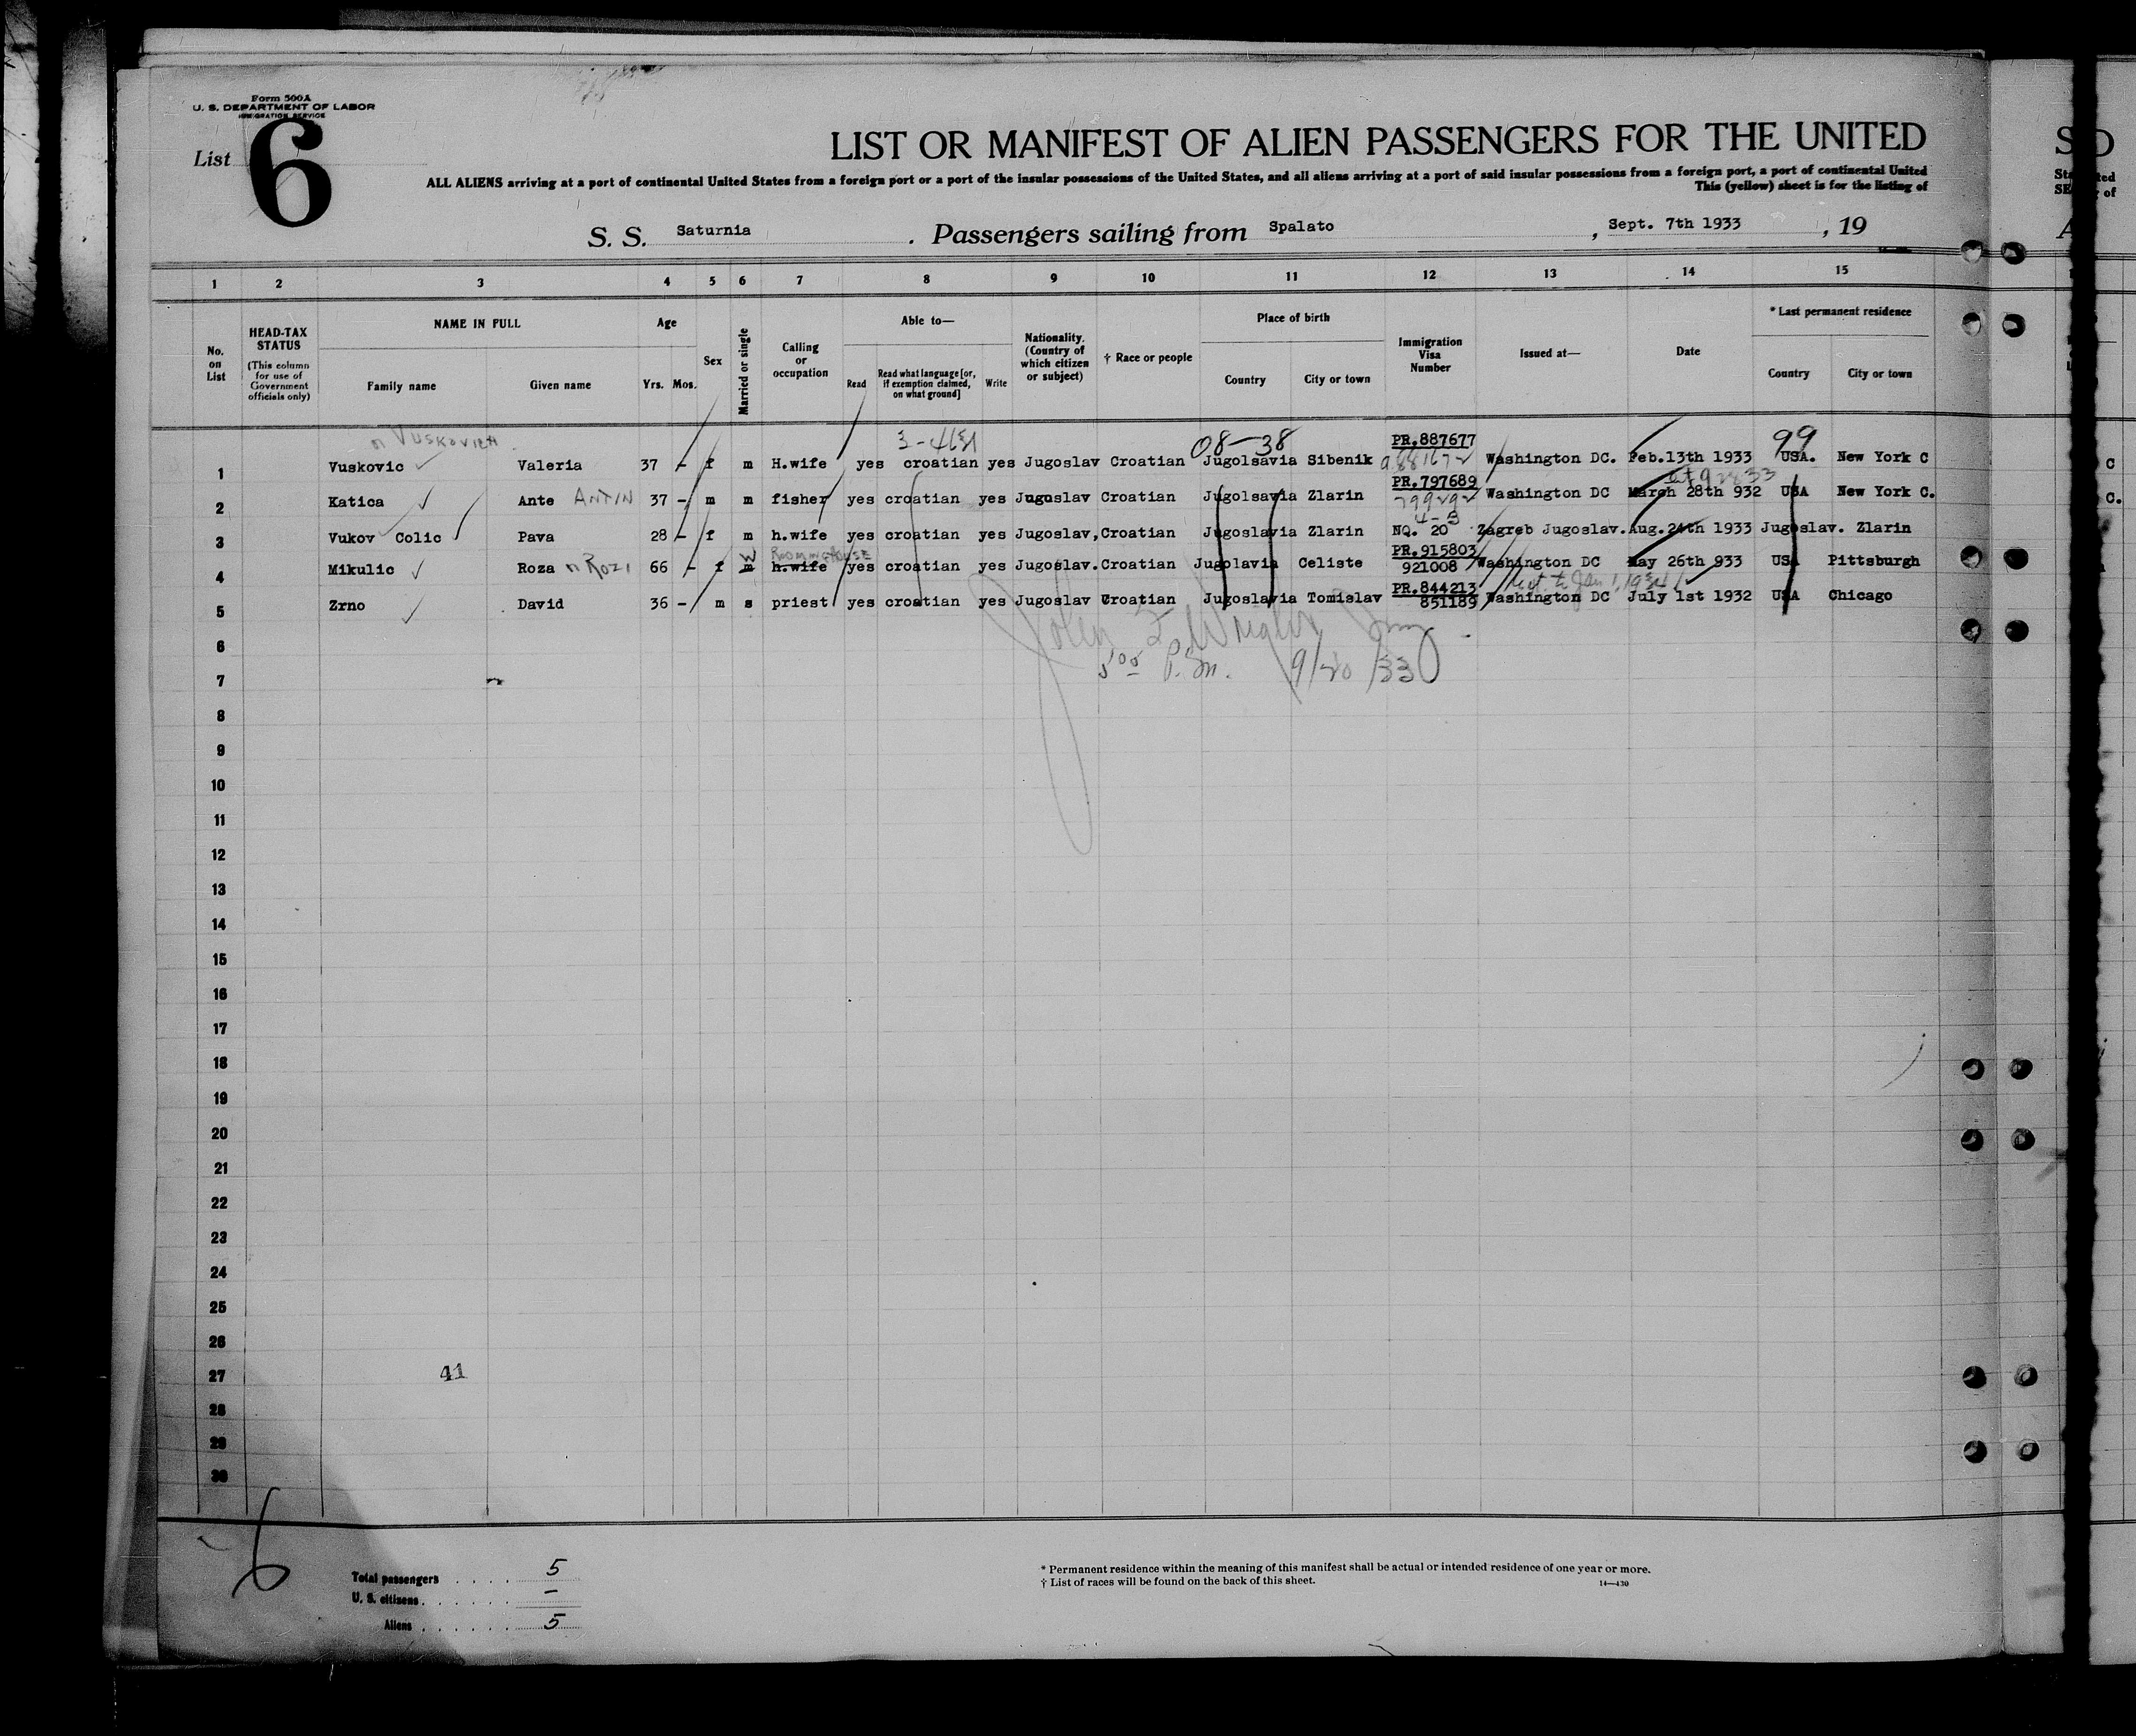 Form 500A
U. S. DEPARTMENT OF LABOR
IMMIGRATION SERVICE
List 6
LIST OR MANIFEST OF ALIEN PASSENGERS FOR THE UNITED
ALL ALIENS arriving at a port of continental United States from a foreign port or a port of the insular possessions of the United States, and all aliens arriving at a port of said insular possessions from a foreign port, a port of continental United
This (yellow) sheet is for the listing of
S. S. Saturnia . Passengers sailing from Spalato , Sept. 7th 1933 , 19
1 2 3 4 5 6 7 8 9 10 11 12 13 14 15
No. on List
HEAD-TAX STATUS (This column for use of Government officials only)
NAME IN FULL Family name Given name
Age Yrs. Mos.
Sex
Married or single
Calling or occupation
Able to— Read Read what language [or, if exemption claimed, on what ground] Write
Nationality. (Country of which citizen or subject)
† Race or people
Place of birth Country City or town
Immigration Visa Number
Issued at—
Date
* Last permanent residence Country City or town
n Vuskovich 3-4 08-38 PR.887677 99
1 Vuskovic Valeria 37 - f m H.wife yes croatian yes Jugoslav Croatian Jugolsavia Sibenik Washington DC. Feb.13th 1933 USA. New York C
PR.797689
2 Katica Ante ANTIN 37 - m m fisher yes croatian yes Jugoslav Croatian Jugolsavia Zlarin 799292 Washington DC March 28th 932 USA New York C.
4-3
3 Vukov Colic Pava 28 - f m h.wife yes croatian yes Jugoslav, Croatian Jugoslavia Zlarin NQ. 20 Zagreb Jugoslav. Aug.24th 1933 Jugoslav. Zlarin
W Rooming House PR.915803
4 Mikulic Roza n Rozi 66 - f m h.wife yes croatian yes Jugoslav. Croatian Jugolavia Celiste 921008 Washington DC May 26th 933 USA Pittsburgh
PR.844213 to Jan 1, 1934
5 Zrno David 36 - m s priest yes croatian yes Jugoslav Croatian Jugoslavia Tomislav 851189 Washington DC July 1st 1932 USA Chicago
6
John F. Wright
7
5 00 P.M. 9/20/33
8
9
10
11
12
13
14
15
16
17
18
19
20
21
22
23
24
25
26
27 41
28
29
30
6
Total passengers . . . . 5
U. S. citizens . . . . . . –
Aliens . . . . . . 5
* Permanent residence within the meaning of this manifest shall be actual or intended residence of one year or more.
† List of races will be found on the back of this sheet.
14—430